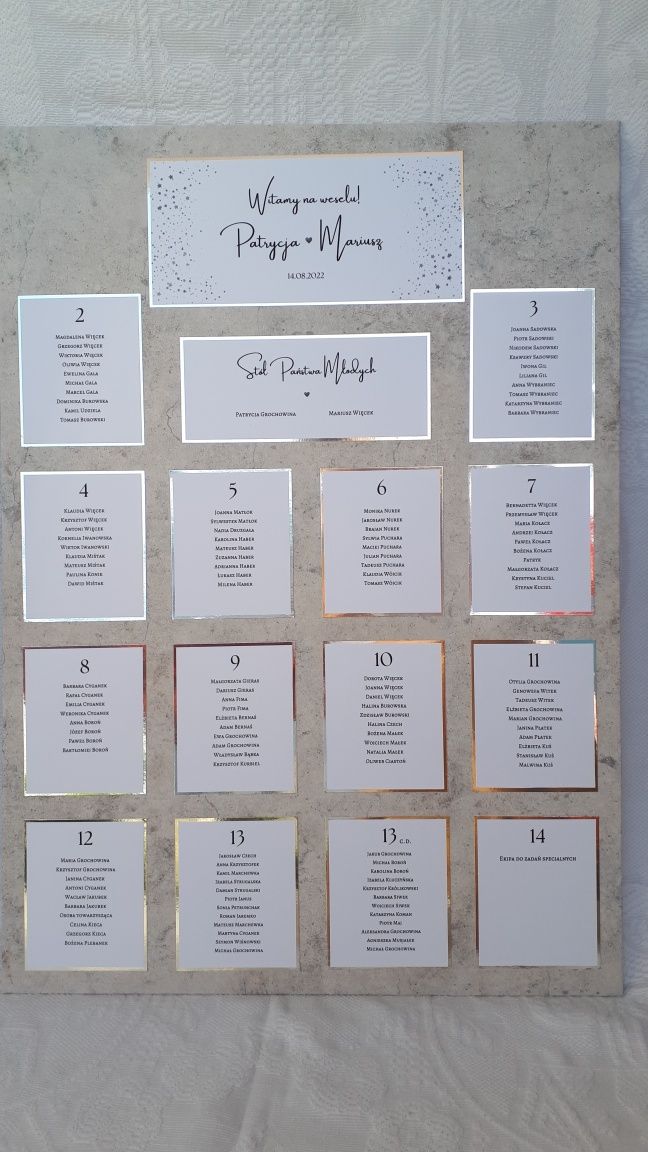 Witamy na weselu!
Patrycja Mariusz
14.08.2022
Stół Państwa Młodych
Patrycja Grochowina Mariusz Więcek
2
Magdalena Więcek
Grzegorz Więcek
Wiktoria Więcek
Oliwia Więcek
Ewelina Gala
Michał Gala
Marcel Gala
Dominika Burowska
Kamil Udziela
Tomasz Burowski
3
Joanna Sadowska
Piotr Sadowski
Nikodem Sadowski
Ksawery Sadowski
Iwona Gil
Liliana Gil
Anna Wybraniec
Tomasz Wybraniec
Katarzyna Wybraniec
Barbara Wybraniec
4
Klaudia Więcek
Krzysztof Więcek
Antoni Więcek
Kornelia Iwanowska
Wiktor Iwanowski
Klaudia Miętak
Mateusz Miętak
Paulina Konik
Dawid Miętak
5
Joanna Matłok
Sylwester Matłok
Nadia Druzgała
Karolina Haber
Mateusz Haber
Zuzanna Haber
Adrianna Haber
Łukasz Haber
Milena Haber
6
Monika Nurek
Jarosław Nurek
Brajan Nurek
Sylwia Puchara
Maciej Puchara
Julian Puchara
Tadeusz Puchara
Klaudia Wójcik
Tomasz Wójcik
7
Bernadetta Więcek
Przemysław Więcek
Maria Kołacz
Andrzej Kołacz
Paweł Kołacz
Bożena Kołacz
Patryk
Małgorzata Kołacz
Krystyna Kuciel
Stefan Kuciel
8
Barbara Cyganek
Rafał Cyganek
Emilia Cyganek
Weronika Cyganek
Anna Boroń
Józef Boroń
Paweł Boroń
Bartłomiej Boroń
9
Małgorzata Gieras
Dariusz Gieras
Anna Fima
Piotr Fima
Elżbieta Bernaś
Adam Bernaś
Ewa Grochowina
Adam Grochowina
Władysław Bąbka
Krzysztof Kurbiel
10
Dorota Więcek
Joanna Więcek
Daniel Więcek
Halina Burowska
Zdzisław Burowski
Halina Czech
Bożena Małek
Wojciech Małek
Natalia Małek
Oliwer Ciastoń
11
Otylia Grochowina
Genowefa Witek
Tadeusz Witek
Elżbieta Grochowina
Marian Grochowina
Janina Płatek
Adam Płatek
Elżbieta Kuś
Stanisław Kuś
Malwina Kuś
12
Maria Grochowina
Krzysztof Grochowina
Janina Cyganek
Antoni Cyganek
Wacław Jakubek
Barbara Jakubek
Osoba towarzysząca
Celina Kieca
Grzegorz Kieca
Bożena Plebanek
13
Jarosław Czech
Anna Krzysztofek
Kamil Marchewka
Izabela Strugalska
Damian Strugalski
Piotr Janus
Sonia Petrunchak
Roman Jaremko
Mateusz Marchewka
Martyna Cyganek
Szymon Wiśnowski
Michał Grochowina
13 c.d.
Jakub Grochowina
Michał Boroń
Karolina Boroń
Izabela Kluczyńska
Krzysztof Królikowski
Barbara Siwek
Wojciech Siwek
Katarzyna Koman
Piotr Maj
Aleksandra Grochowina
Agnieszka Musiałek
Michał Grochowina
14
Ekipa do zadań specjalnych